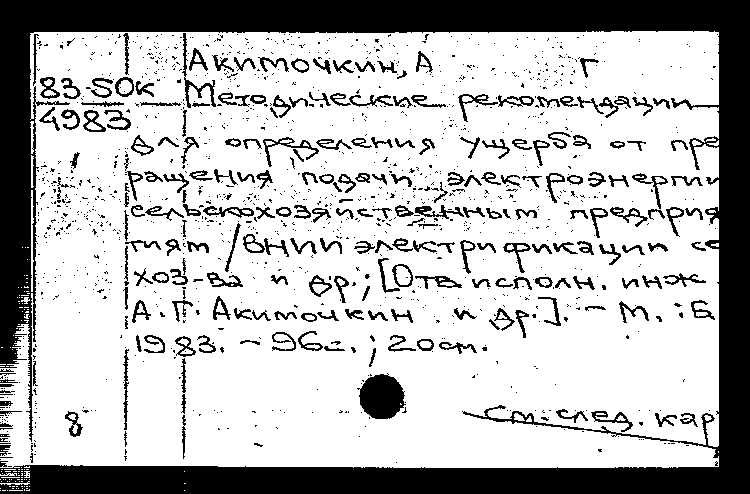 Акимочкин, А Г
83-5ОК
Методические рекомендации
4983
для определения ущерба от пре
ращения подачи электроэнергии
сельскохозяйственным предприя
тиям / ВНИИ электрификации се
хоз-ва и др.; [Отв. исполн. инж.
А.Г. Акимочкин и др.]. - М. : Б
1983. - 96с. ; 20см.
8
См. след. кар